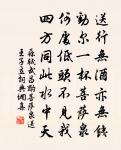 送行無酒亦無錢
勸爾一杯菩薩泉
何處低頭不見我
四方同此水中天
蘇軾武昌酌菩薩泉送
王子立 詞典網集